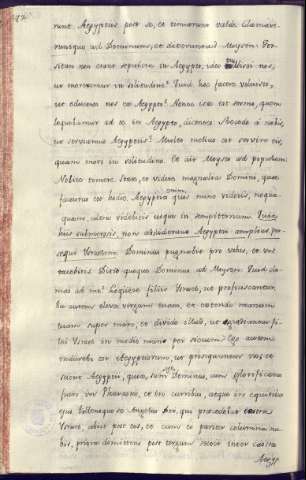 runt Aegyptios post se, et timuerunt valde. Clamave-
runtque ad Dominum, et dixerunt ad Moysen: For-
sitan non erant sepulcra in Aegypto, ideo tulisti nos,
ut moreremur in solitudine? Quid hoc facere voluisti,
ut educeres nos ex Aegypto? Nonne iste est sermo, quem
loquebamur ad te in Aegypto, dicentes: Recede a nobis,
ut serviamus Aegyptiis? Multo melius erat servire eis,
quam mori in solitudine. Et ait Moyses ad populum:
Nolite timere. State, et videte magnalia Domini, quae
facturus est hodie. Aegyptios enim quos nunc videtis, nequa-
quam ultra videbitis usque in sempiternum.
non Aegyptii amplius per-
sequi Dominus pugnabit pro vobis, et vos
tacebitis. Dixit quoque Dominus ad Moysen: Quid cla-
mas ad me? Loquere filiis Israel, ut proficiscantur.
Tu autem eleva virgam tuam, et extende manum
tuam super mare, et divide illud, ut gradiantur fi-
lii Israel in medio mari per siccum. Ego autem
indurabo cor Aegyptiorum, ut persequantur vos, et
sciant Aegyptii, quia sum Dominus, cum glorificatus
fuero in Pharaone, et in curribus, atque in equitibus
ejus. Tollensque se Angelus Dei, qui praecedebat castra
Israel, abiit post eos, et cum eo pariter columna nu-
bis, priora dimittens, post tergum stetit inter castra
Aegyp